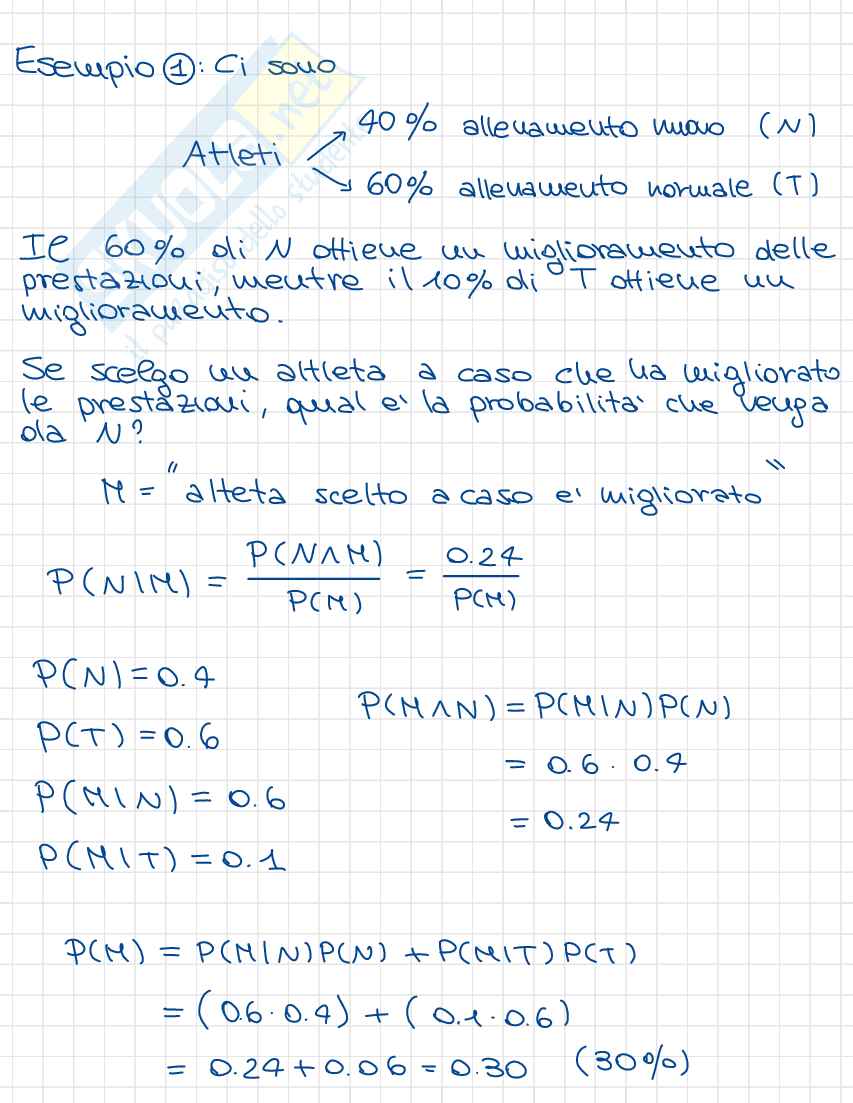 Esempio ①: Ci sono
40% allenamento nuovo (N)
Atleti
60% allenamento normale (T)
Il 60% di N ottiene un miglioramento delle
prestazioni, mentre il 10% di T ottiene un
miglioramento.
Se scelgo un altleta a caso che ha migliorato
le prestazioni, qual è la probabilità che venga
da N?
M = "alteta scelto a caso è migliorato"
P(N|M) = P(N∧M) / P(M) = 0.24 / P(M)
P(N) = 0.4
P(M∧N) = P(M|N)P(N)
P(T) = 0.6
= 0.6 · 0.4
P(M|N) = 0.6
= 0.24
P(M|T) = 0.1
P(M) = P(M|N)P(N) + P(M|T)P(T)
= (0.6 · 0.4) + (0.1 · 0.6)
= 0.24 + 0.06 = 0.30 (30%)